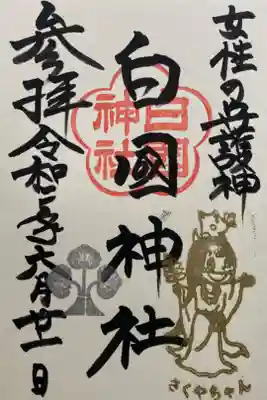 女性の守護神
白國神社
白國
神社
参拝令和年六月廿一日
さくやちゃん